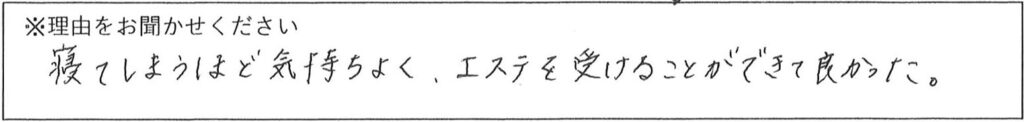 ※理由をお聞かせください
寝てしまうほど気持ちよく、エステを受けることができて良かった。